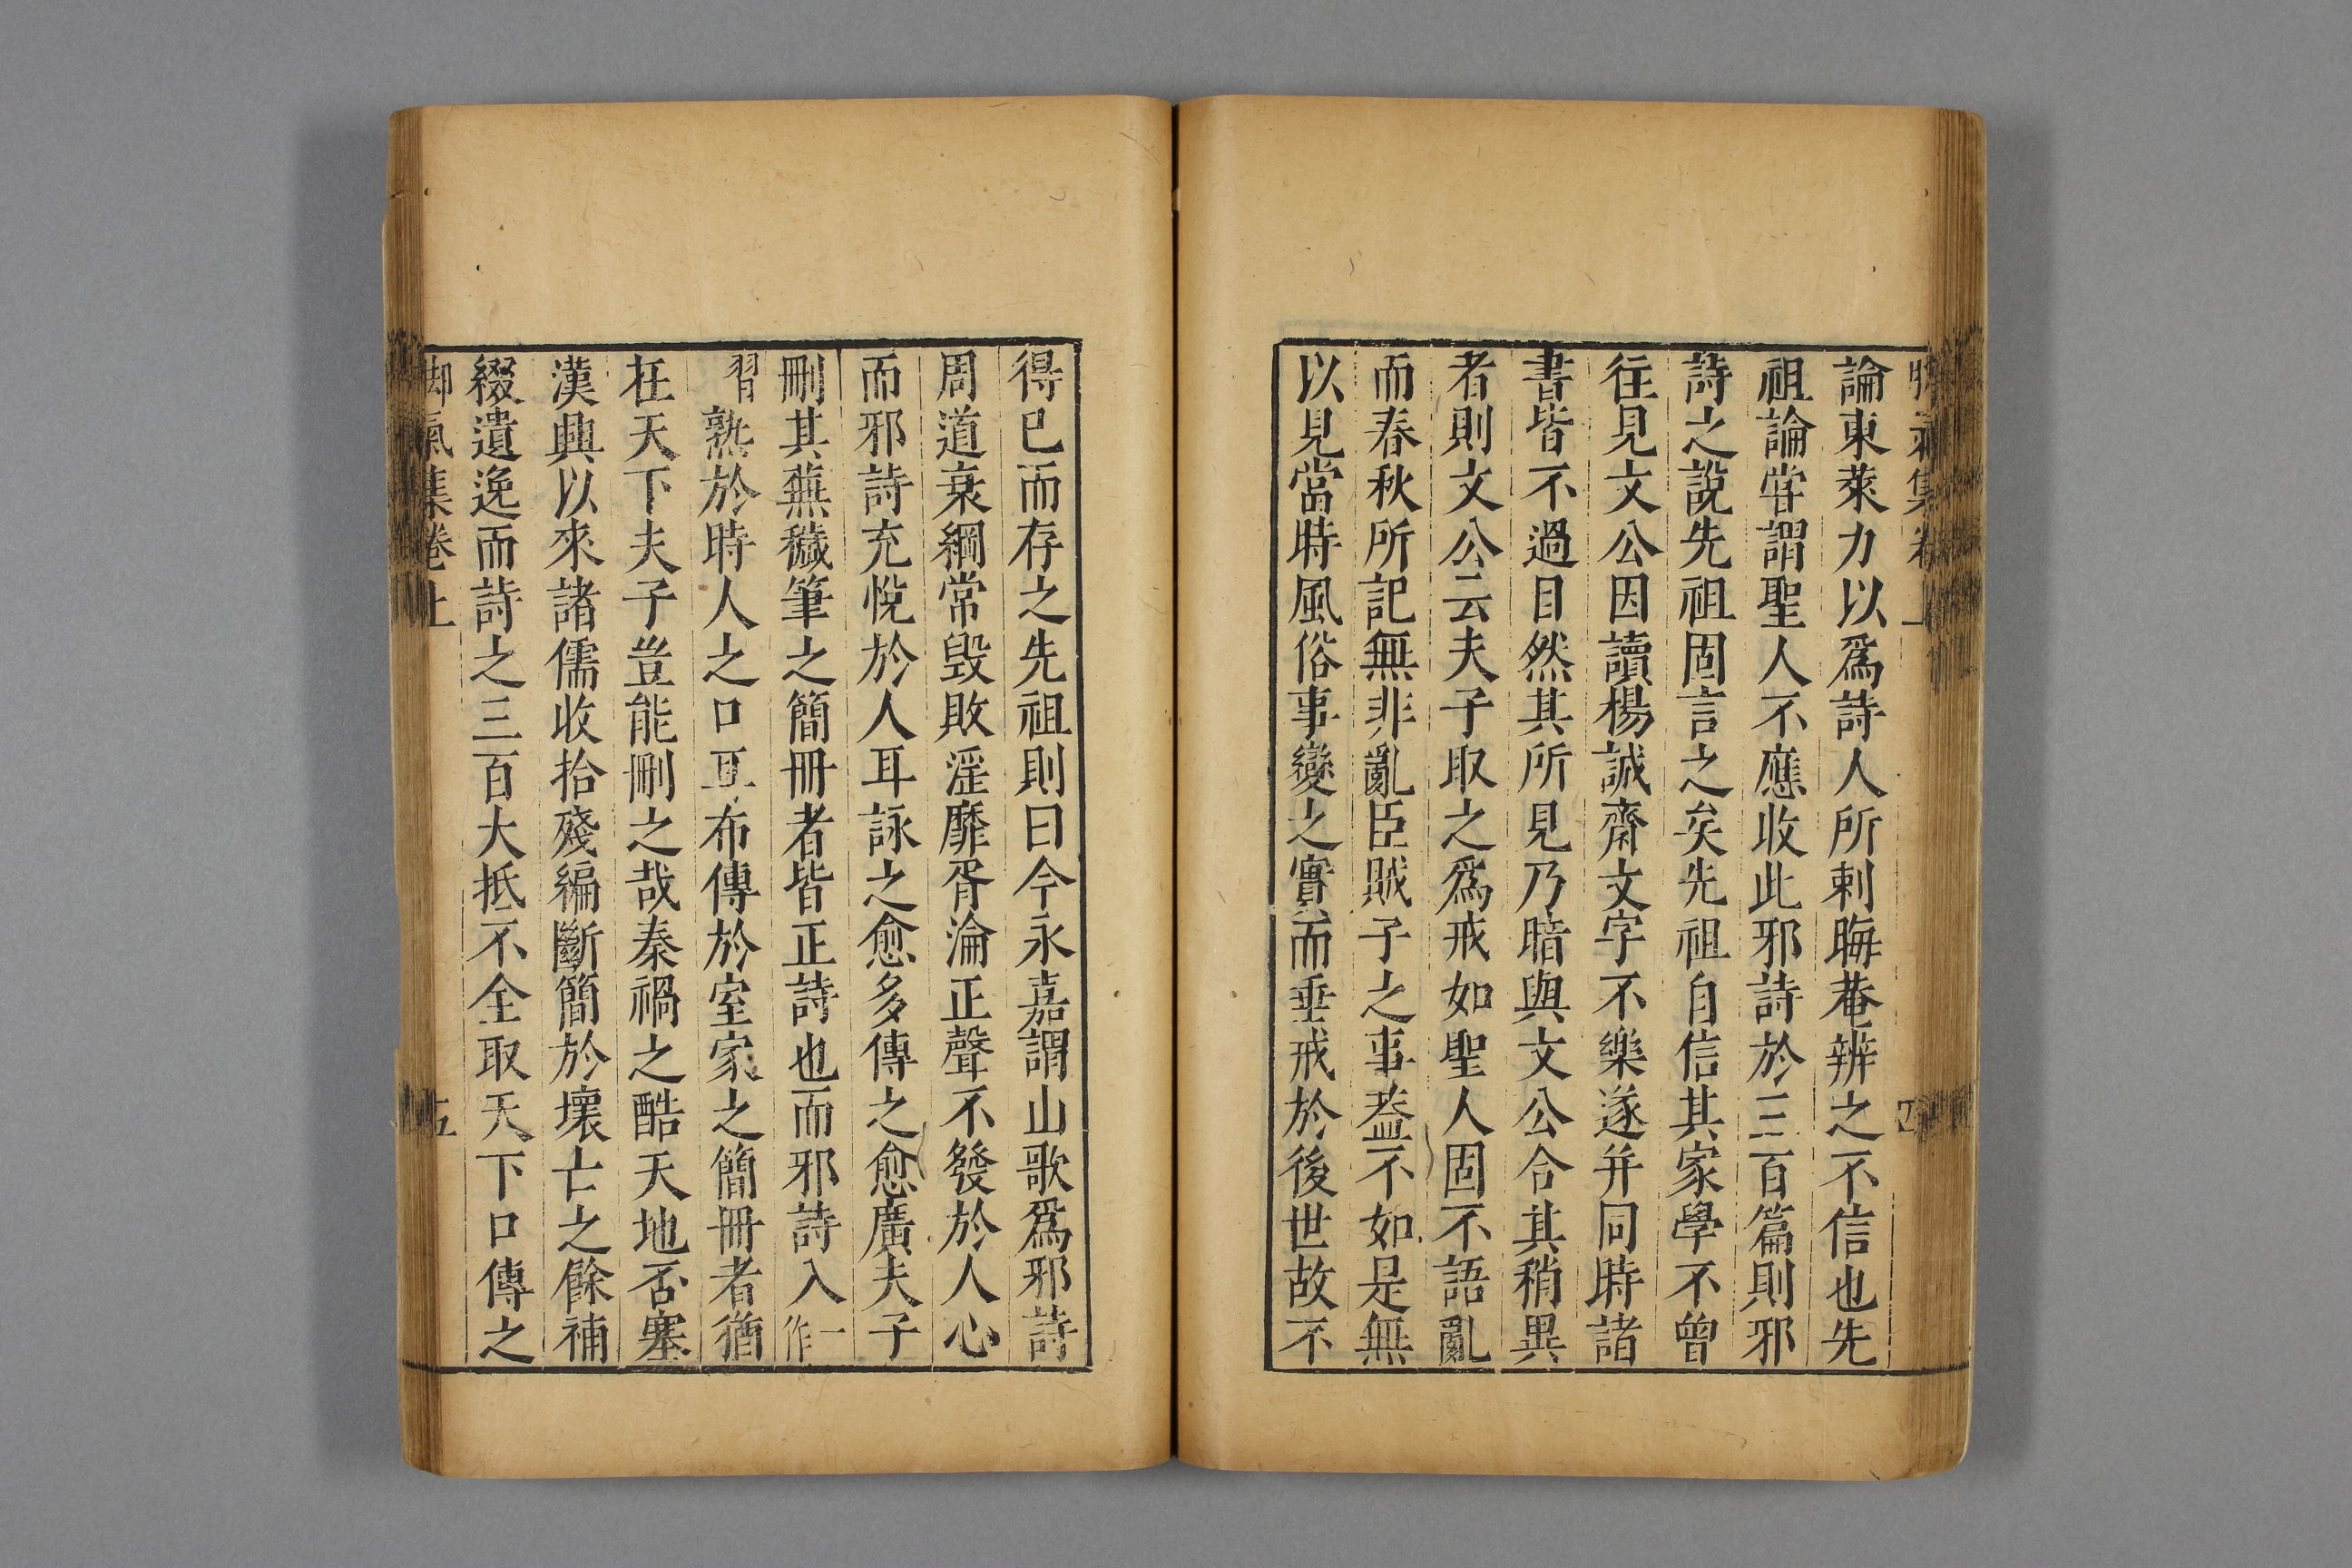 論東萊力以爲詩人所刺晦菴辨之不信也先
祖論嘗謂聖人不應收此邪詩於三百篇則邪
詩之說先祖固言之矣先祖自信其家學不曾
往見文公因讀楊誠齋文字不樂遂并同時諸
書皆不過目然其所見乃暗與文公合其稍異
者則文公云夫子取之爲戒如聖人固不語亂
而春秋所記無非亂臣賊子之事葢不如是無
以見當時風俗事變之實而垂戒於後世故不
得已而存之先祖則曰今永嘉謂山歌爲邪詩
周道衰綱常毀敗淫靡胥淪正聲不發於人心
而邪詩充悅於人耳詠之愈多傳之愈廣夫子
刪其蕪穢筆之簡冊者皆正詩也而邪詩入一作
習熟於時人之口互布傳於室家之簡冊者猶
在天下夫子豈能刪之哉秦禍之酷天地否塞
漢興以來諸儒收拾殘編斷簡於壞亡之餘補
綴遺逸而詩之三百大抵不全取天下口傳之
脚氣集卷上 五